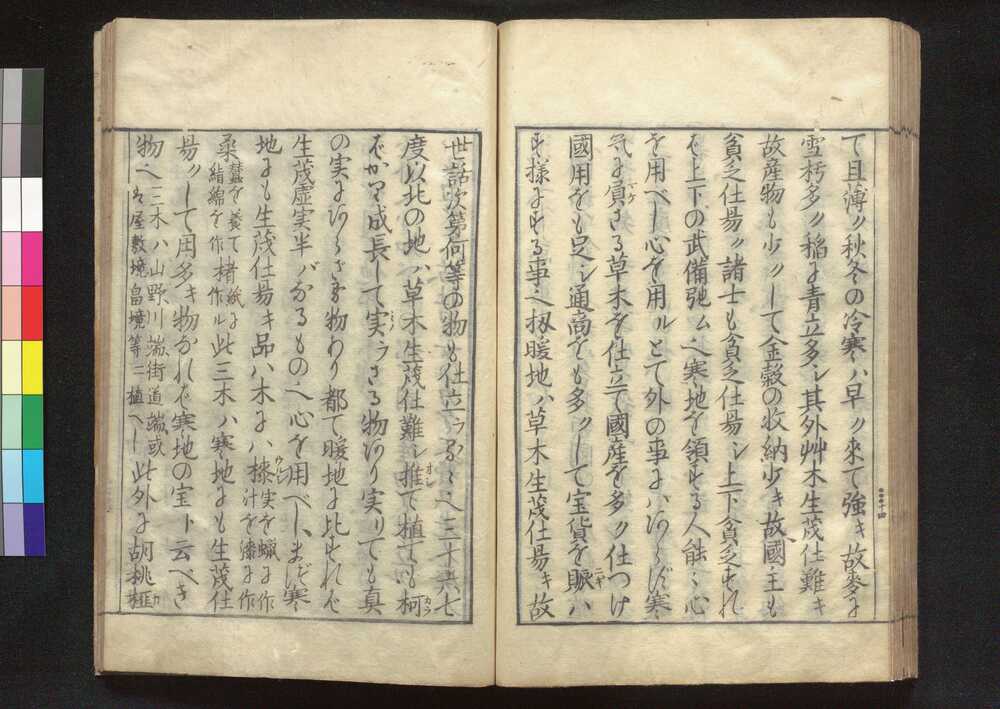 て且薄ク秋冬の冷寒ハ早ク来て強キ故麥に
雪朽多ク稲に青立多シ其外艸木生茂仕難キ
故産物も少クして金穀の収納少キ故國主も
貧乏仕易ク諸士も貧乏仕易シ上下貧乏すれ
ば上下の武備弛ム也寒地を領する人能々心
を用べし心を用ルとて外の事にハあらず寒
気に負ざる草木を仕立て國産を多ク仕つけ
國用をも足シ通商をも多クして宝貨を賑ハ
す様にする事也扨暖地ハ草木生茂仕易キ故
世話次第何等の物も仕立ラるゝ也三十六七
度以北の地ハ草木生茂仕難シ推て植ても柯
ばかり成長して実ラざる物あり実りても真
の実にあらざる物あり都て暖地に比すれば
生茂虚実半バなるもの也心を用べし、まづ寒
地にも生茂仕易キ品ハ木にハ、漆実を蝋に作汁を漆に作
桑蚕を養て絹綿を作楮紙に作ル此三木ハ寒地にも生茂仕
易クして用多キ物なれバ寒地の宝ト云べき
物也三木ハ山野川端街道端或は屋敷境畠境等ニ植べし此外に胡桃榧